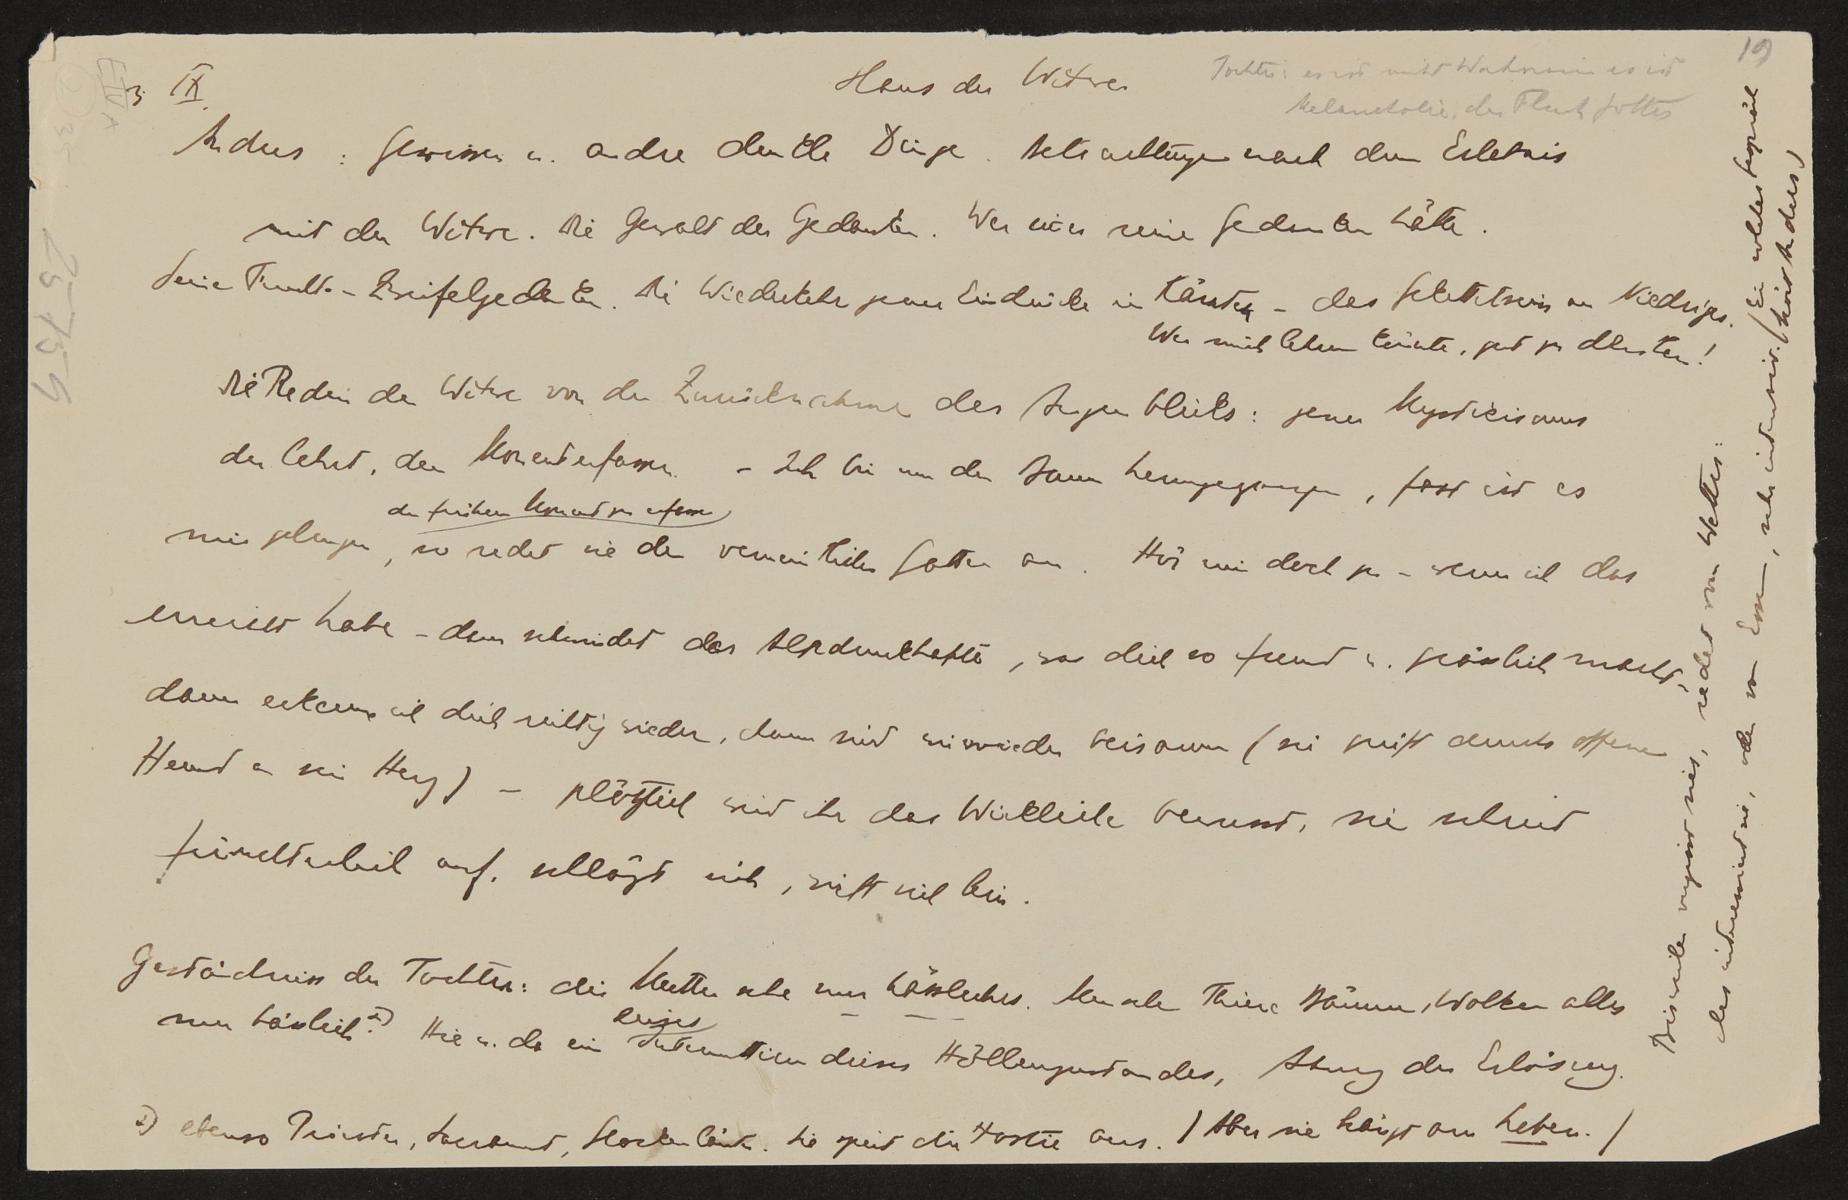 19
3 IX.
Haus der Witwe
Tochter: es ist nicht Wahnsinn es ist
Melancholie, der Fluch Gottes
Andres: Gewissen u. andre dunkle Dinge. Betrachtungen nach dem Erlebnis
mit der Witwe. Die Gewalt der Gedanken. Wer nie seine Gedanken hätte.
Seine Zweifelgedanken. Die Wiederkehr jener Eindrücke in Kärnten – das Gekettetsein an Niedriges.
Wer mich lehren könnte, gut zu
Die Reden der Witwe von der Zurücknahme des Augenblicks: jener Mysticismus
der lehrt, den Moment erfassen. – Ich bin um den Baum herumgegangen, fast ist es
den früheren Moment zu erfassen
mir gelungen, so redet sie den vermeintlichen Gatten an. Hör mir doch zu – wenn ich das
erreicht habe – dann schwindet das Alpdruckhafte, was dich so fremd u. grässlich macht –
dann erkenne ich dich richtig wieder, dann sind wir wieder beisammen (sie greift durchs offene
Hemd an sein Herz) – plötzlich wird ihr das Wirkliche bewusst, sie schreit
fürchterlich auf, schlägt sich, wirft sich hin.
Geständniss der Tochter: die Mutter sehe nur hässliches. Menschen Thiere Bäume, Wolken alles
nur hässlich. 1) Hie u. da ein leises Intermittieren dieses Höllenzustandes, Ahnung der Erlösung.
1) ebenso Priester, Sacrament, Glockenläuten. Sie speit die Hostie aus. (Aber sie hängt am Leben.)
Bisweilen vergisst sie's, redet vom Wetter:
das interessiert sie, oder vom Essen, sehr intensiv. (Ein solches Gespräch
hört Andres)